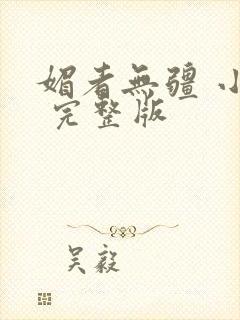 媚者無疆 小
完整版
吴毅